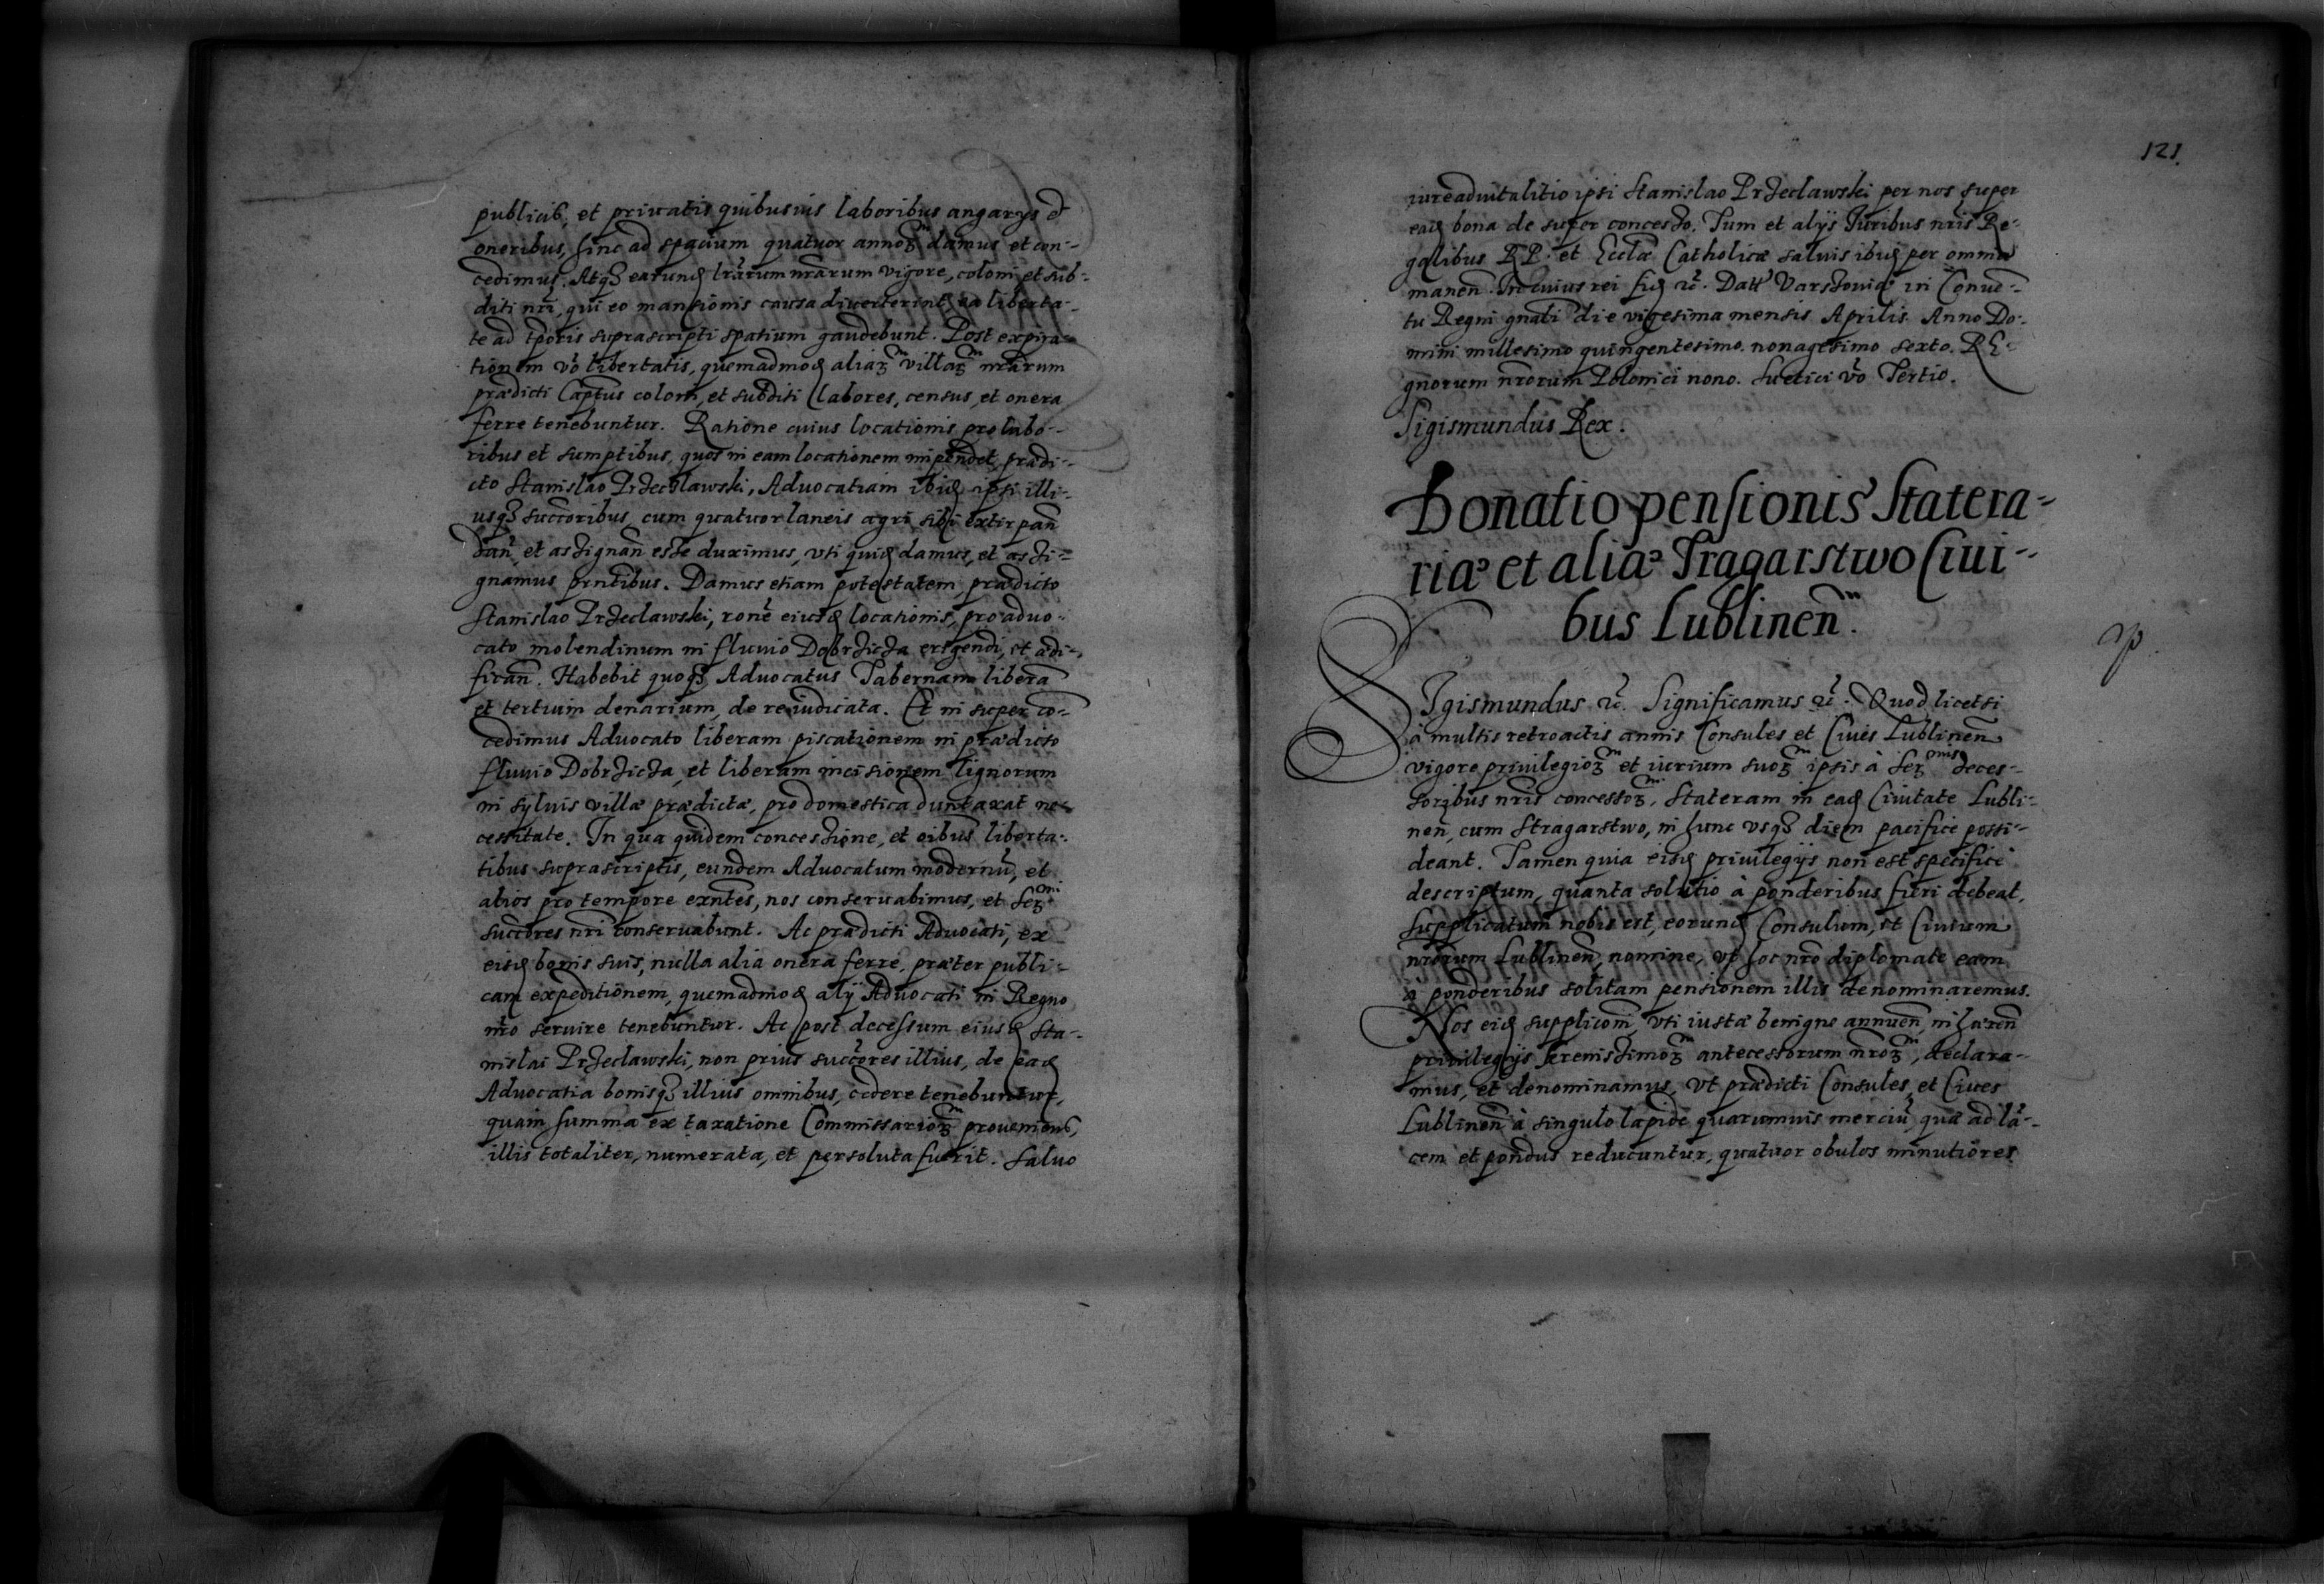 publicis, et priuatis quibusuis laboribus angarijs et
oneribus, hinc ad spacium quatuor annoꝝ damus et con-
cedimus. Atqꝫ earund lrãrum nrãrum vigore, coloni et sub-
diti nrĩ, qui eo mansionis causa diuerterint, ea liberta-
te ad tpõris suprascripti spatium gaudebunt. Post expira-
tionem vo libertatis, quemadmod aliaꝝ villaꝝ nrãrum
prædicti Captus coloni, et subditi labores, census, et onera
ferre tenebuntur. Ratione cuius locationis pro labo-
ribus et sumptibus, quos in eam locationem impendet, prædi-
cto Stanislao Przeclawski, Aduocatiam ibid ipsi illi-
usqꝫ succoribus, cum quatuor laneis agri sibi extirpan
dan, et assignan esse duximus, vti quid damus, et assi-
gnamus pntibus. Damus etiam potestatem, prædicto
Stanislao Przeclawski, rone eiusd locationis, pro aduo-
cato molendinum in fluuio Dobrzicza erigendi, et ædi-
fican. Habebit quoqꝫ Aduocatus Tabernam libera
et tertium denarium, de re iudicata. Et in super co-
cedimus Aduocato liberam piscationem in prædicto
fluuio Dobrzicza, et liberam incisionem lignorum
in syluis villæ prædictæ, pro domestica duntaxat ne-
cessitate. In qua quidem concessione, et oibus liberta-
tibus suprascriptis, eundem Aduocatum modernu, et
alios pro tempore exntes, nos conseruabimus, et Serꝫmi
succores nri conseruabunt. Ac prædicti Aduocati, ex
eisd bonis suis, nulla alia onera ferre, præter publi-
cam expeditionem, quemadmod alij Aduocati in Regno
nro seruire tenebuntur. Ac post decessum eiusd Sta-
nislai Przeclawski, non prius succores illius, de ead
Aduocatia bonisqꝫ illius omnibus, cedere tenebuntur,
quam summa ex taxatione Commissarioꝝ proueniens,
illis totaliter, numerata, et persoluta fuerit. Saluo
121.
iure aduitalitio ipsi Stanislao Przeclawski per nos super
ead bona de super concesso. Tum et alijs Iuribus nris Re-
galibus RP. et Ecclæ Catholicæ saluis ibid per omnia
manen. In cuius rei fid ꝛc. Datt Varssouiæ in Conue-
tu Regni gnali die vigesima mensis Aprilis. Anno Do-
mini millesimo quingentesimo nonagesimo sexto. RE-
gnorum nrorum Polonici nono. Suetici vo Tertio.
Sigismundus Rex.
Donatio pensionis Statera-
riæ et aliæ Tragarstwo Ciui-
bus Lublinen.
SIgismundus ꝛc. Significamus ꝛc. Quod licet si
à multis retroactis annis Consules et Ciues Lublinen
vigore priuilegioꝝ et iurium suoꝝ ipsis à Serꝫmis deces-
soribus nris concessoꝝ, stateram in ead Ciuitate Lubli-
nen, cum Stragarstwo, in hunc vsqꝫ diem pacifice possi-
deant. Tamen quia eisd priuilegijs non est specificè
descriptum, quanta solutio à ponderibus fieri debeat,
supplicatum nobis est, eorund Consulum, et Ciuium
nrorum Lublinen, nomine, vt hoc nro diplomate eam
à ponderibus solitam pensionem illis denominaremus.
Nos eid suppliconi, vti iustæ benigne annuen, inhæren
priuilegijs Serenissimoꝝ antecessorum nroꝝ, declara-
mus, et denominamus, vt prædicti Consules, et Ciues
Lublinen à singulo lapide quarumuis merciu, quæ ad la-
cem et pondus reducuntur, quatuor obulos minutiores